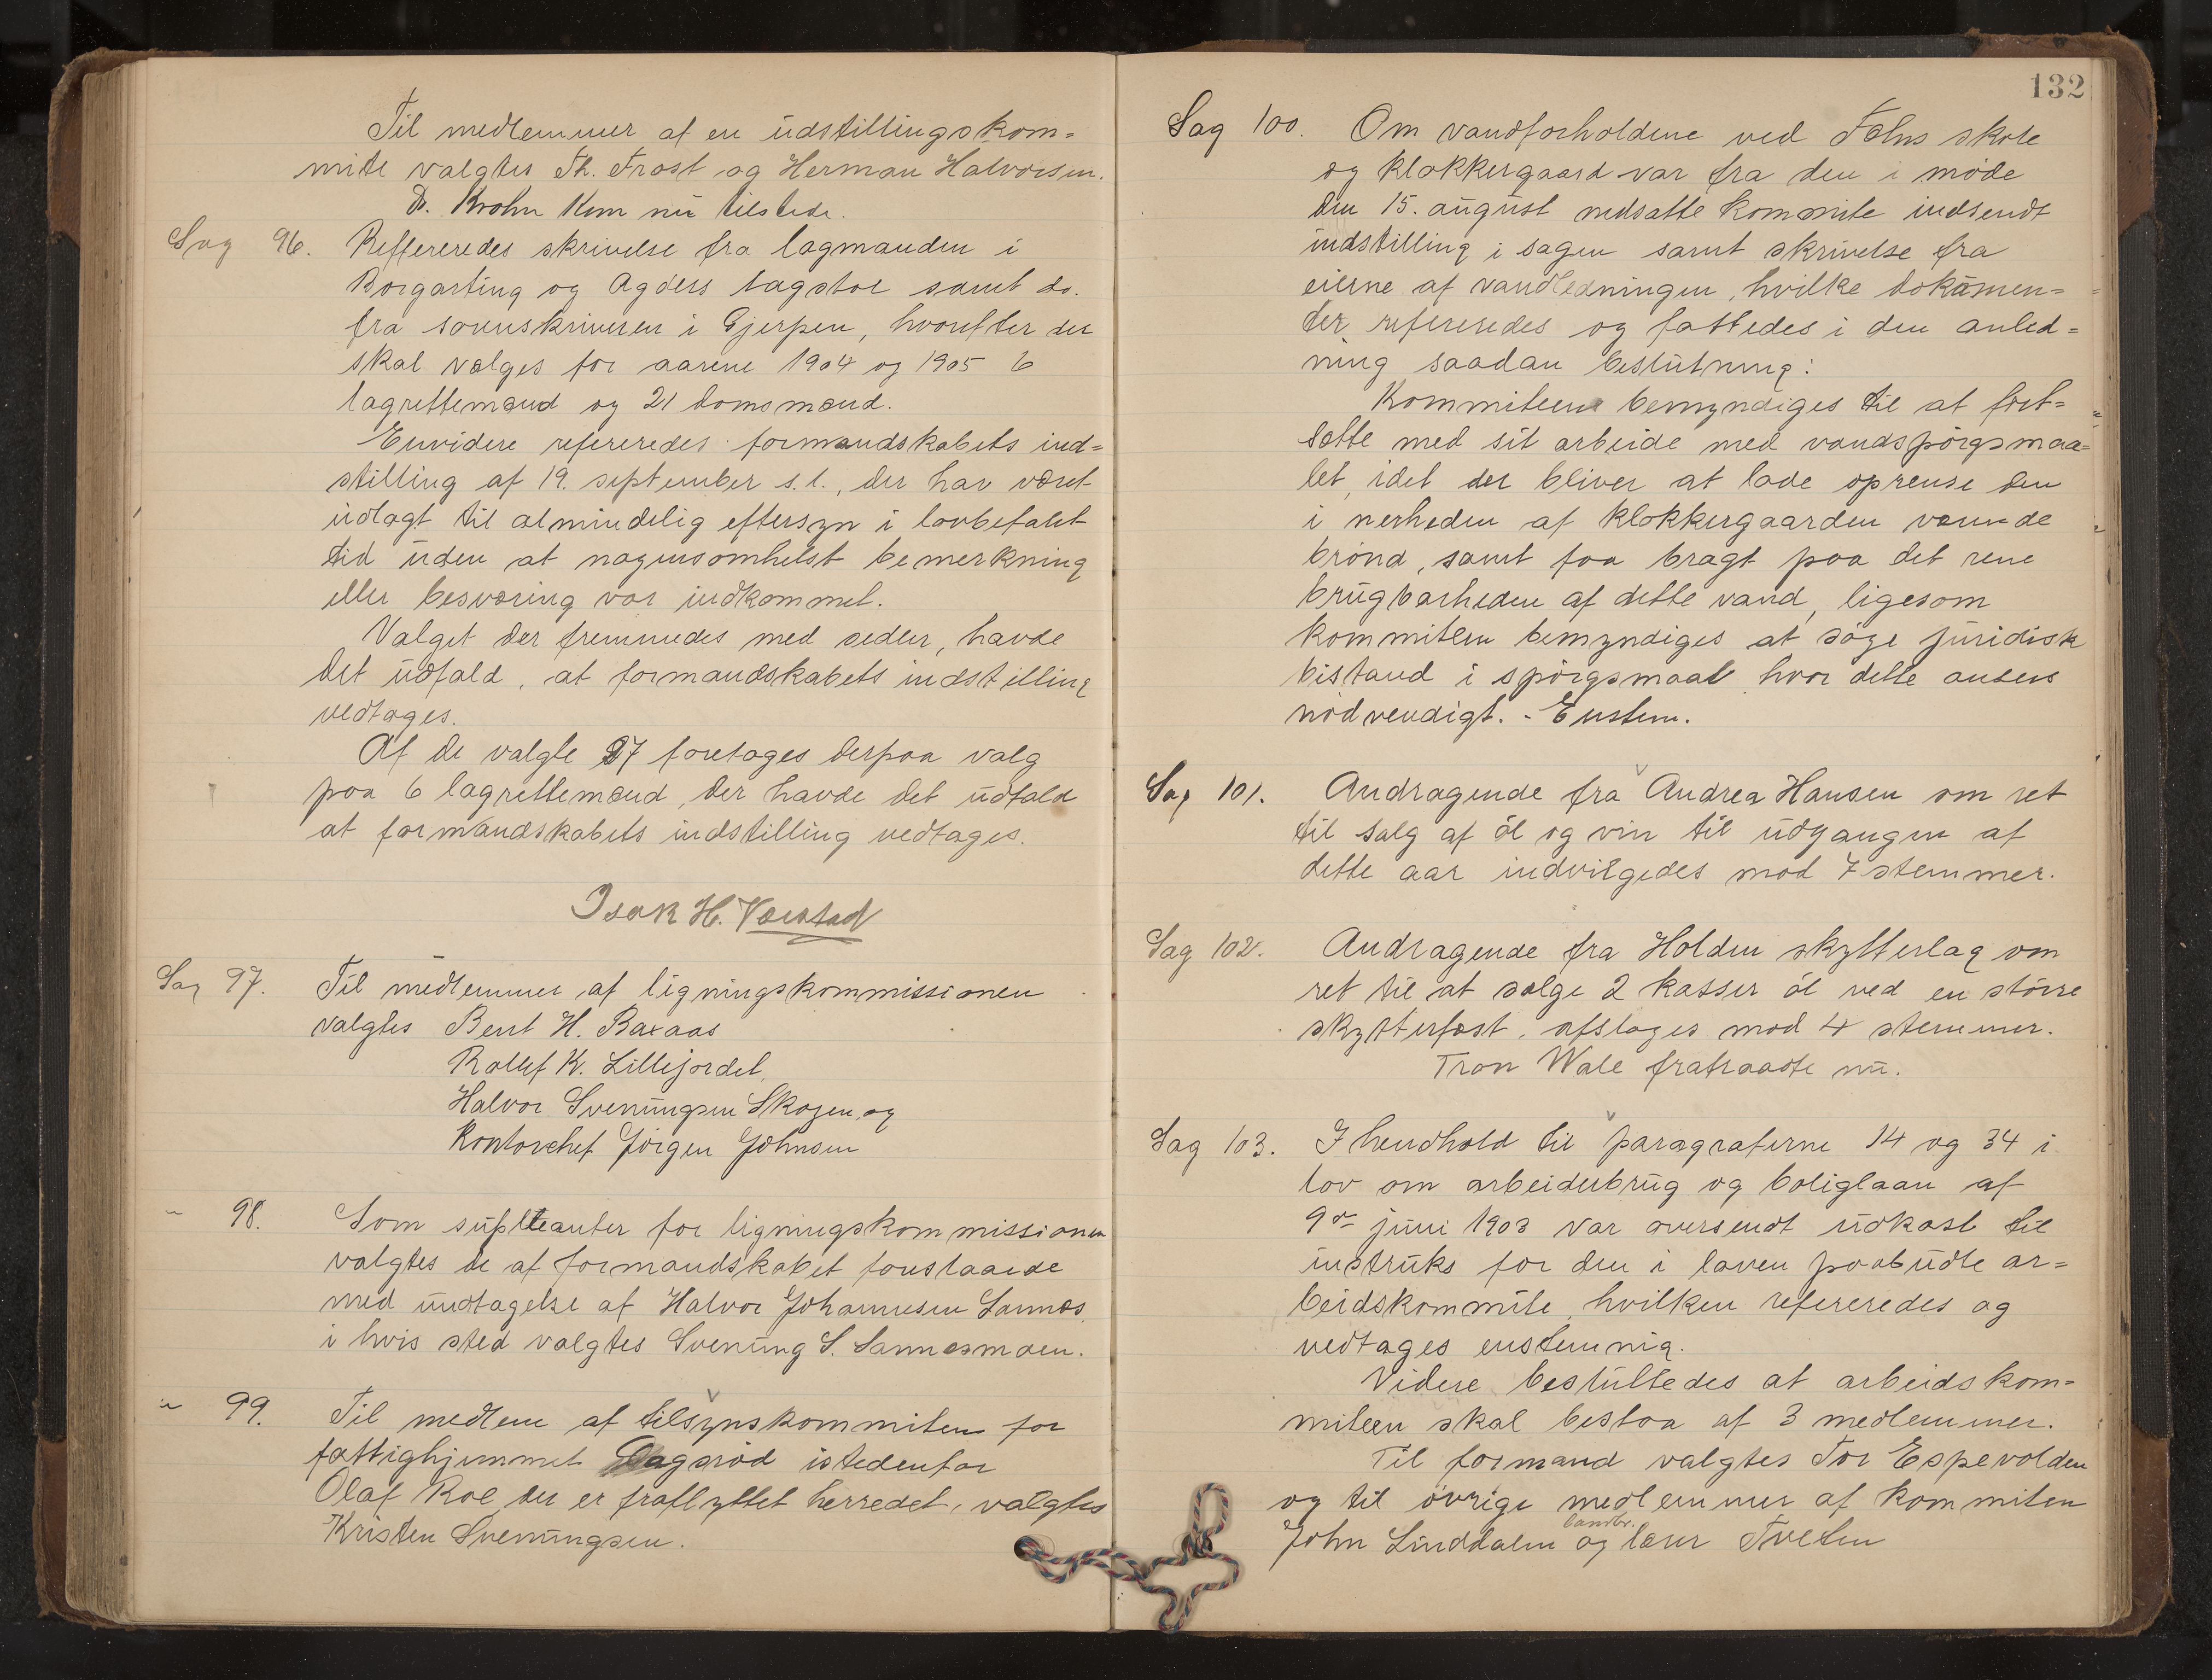 Til medlemmer af en udstillingskom=
mite valgtes Th. Frost og Herman Halvorsen.
Dr. Krohn kom nu tilstede.
Sag 96. Reffereredes skrivelse fra lagmanden i
Borgarting og Agders lagstol samt do.
fra sorenskriveren i Gjerpen, hvorefter der
skal vælges for aarene 1904 og 1905 6
lagrettemænd og 21 domsmænd.
Envidere refereredes formandskabets ind=
stilling af 19. september s.l., der har været
udlagt til almindelig eftersyn i lovbefalet
tid uden at nogensomhelst bemerkning
eller besværing var indkommet.
Valget der fremmedes med sedler, havde
det udfald, at formandskabets indstilling
vedtages.
Af de valgte 27 foretages derpaa valg
paa 6 lagrettemænd, der havde det udfald
at formandskabets indstilling vedtages.
Isak H. Værstad
Sag 97. Til medlemmer af ligningskommissionen
valgtes Bent H. Baxaas
Rollef K. Lillejordet,
Halvor Sveningsen Skogen og
Kontorchef Jörgen Johnsen
" 98. Som supleanter for ligningskommissionen
valgtes de af formandskabet foreslaaede
med undtagelse af Halvor Johannesen Sannes,
i hvis sted valgtes Svenung S. Sannesmoen.
" 99. Til medlem af tilsynskommiteen for
fattighjemmet Dagsrød istedenfor
Olaf Roe, der er fraflyttet herredet, valgtes
Kristen Svenungsen.
132
Sag 100. Om vandforholdene ved Folms skole
og klokkergaard var fra den i møde
den 15. august nedsatte kommite indsendt
indstilling i sagen samt skrivelse fra
eierne af vandledningen, hvilke dokumen=
ter refereredes og fattedes i den anled=
ning saadan beslutning:
Kommiteen bemyndiges til at fort=
sætte med sit arbeide med vandspörgsmaa=
let, idet der bliver at lade oprense den
i nerheden af klokkergaarden værende
brönd, samt faa bragt paa det rene
brugbarheden af dette vand, ligesom
kommiteen bemyndiges at söge juridisk
bistand i spörgsmaal hvor dette ansees
nödvendigt. - Enstem.
Sag 101. Andragende fra Andrea Hansen om ret
til salg af öl og vin til udgangen af
dette aar indvilgedes mod 7 stemmer.
Sag 102. Andragende fra Holden skytterlag om
ret til at sælge 2 kasser öl ved en större
skytterfest, afslages mod 4 stemmer.
Tron Wale fratraadte nu.
Sag 103. I henhold til paragraferne 14 og 34 i
lov om arbeiderbrug og boliglaan af
9de juni 1903 var oversendt udkast til
instruks for den i loven paabudte ar=
beidskommite, hvilken refereredes og
vedtages enstemmig.
Videre besluttedes at arbeidskom=
miteen skal bestaa af 3 medlemmer.
Til formand valgtes Tor Espevolden
og til övrige medlemmer af kommiteen
landbr.
John Linddalen og lærer Tveten